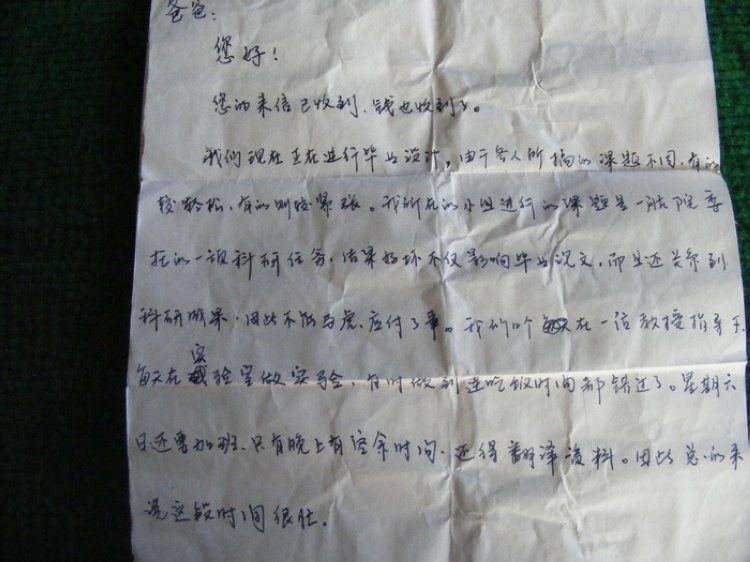 爸爸:
您好!
您的来信已收到,钱也收到了。
我们现在正在进行毕业设计,由于各人所搞的课题不同,有的
较轻松,有的则较紧张。我所在的小组进行的课题是一航院委
托的一项科研任务,结果好坏不仅影响毕业论文,而且还关系到
科研成果,因此不能马虎、应付了事。我们在一位教授指导下
每天在实验室做实验,有时做到连吃饭时间都错过了。星期六
日还要加班,只有晚上有空余时间,还得翻译资料。因此总的来
说这段时间很忙.